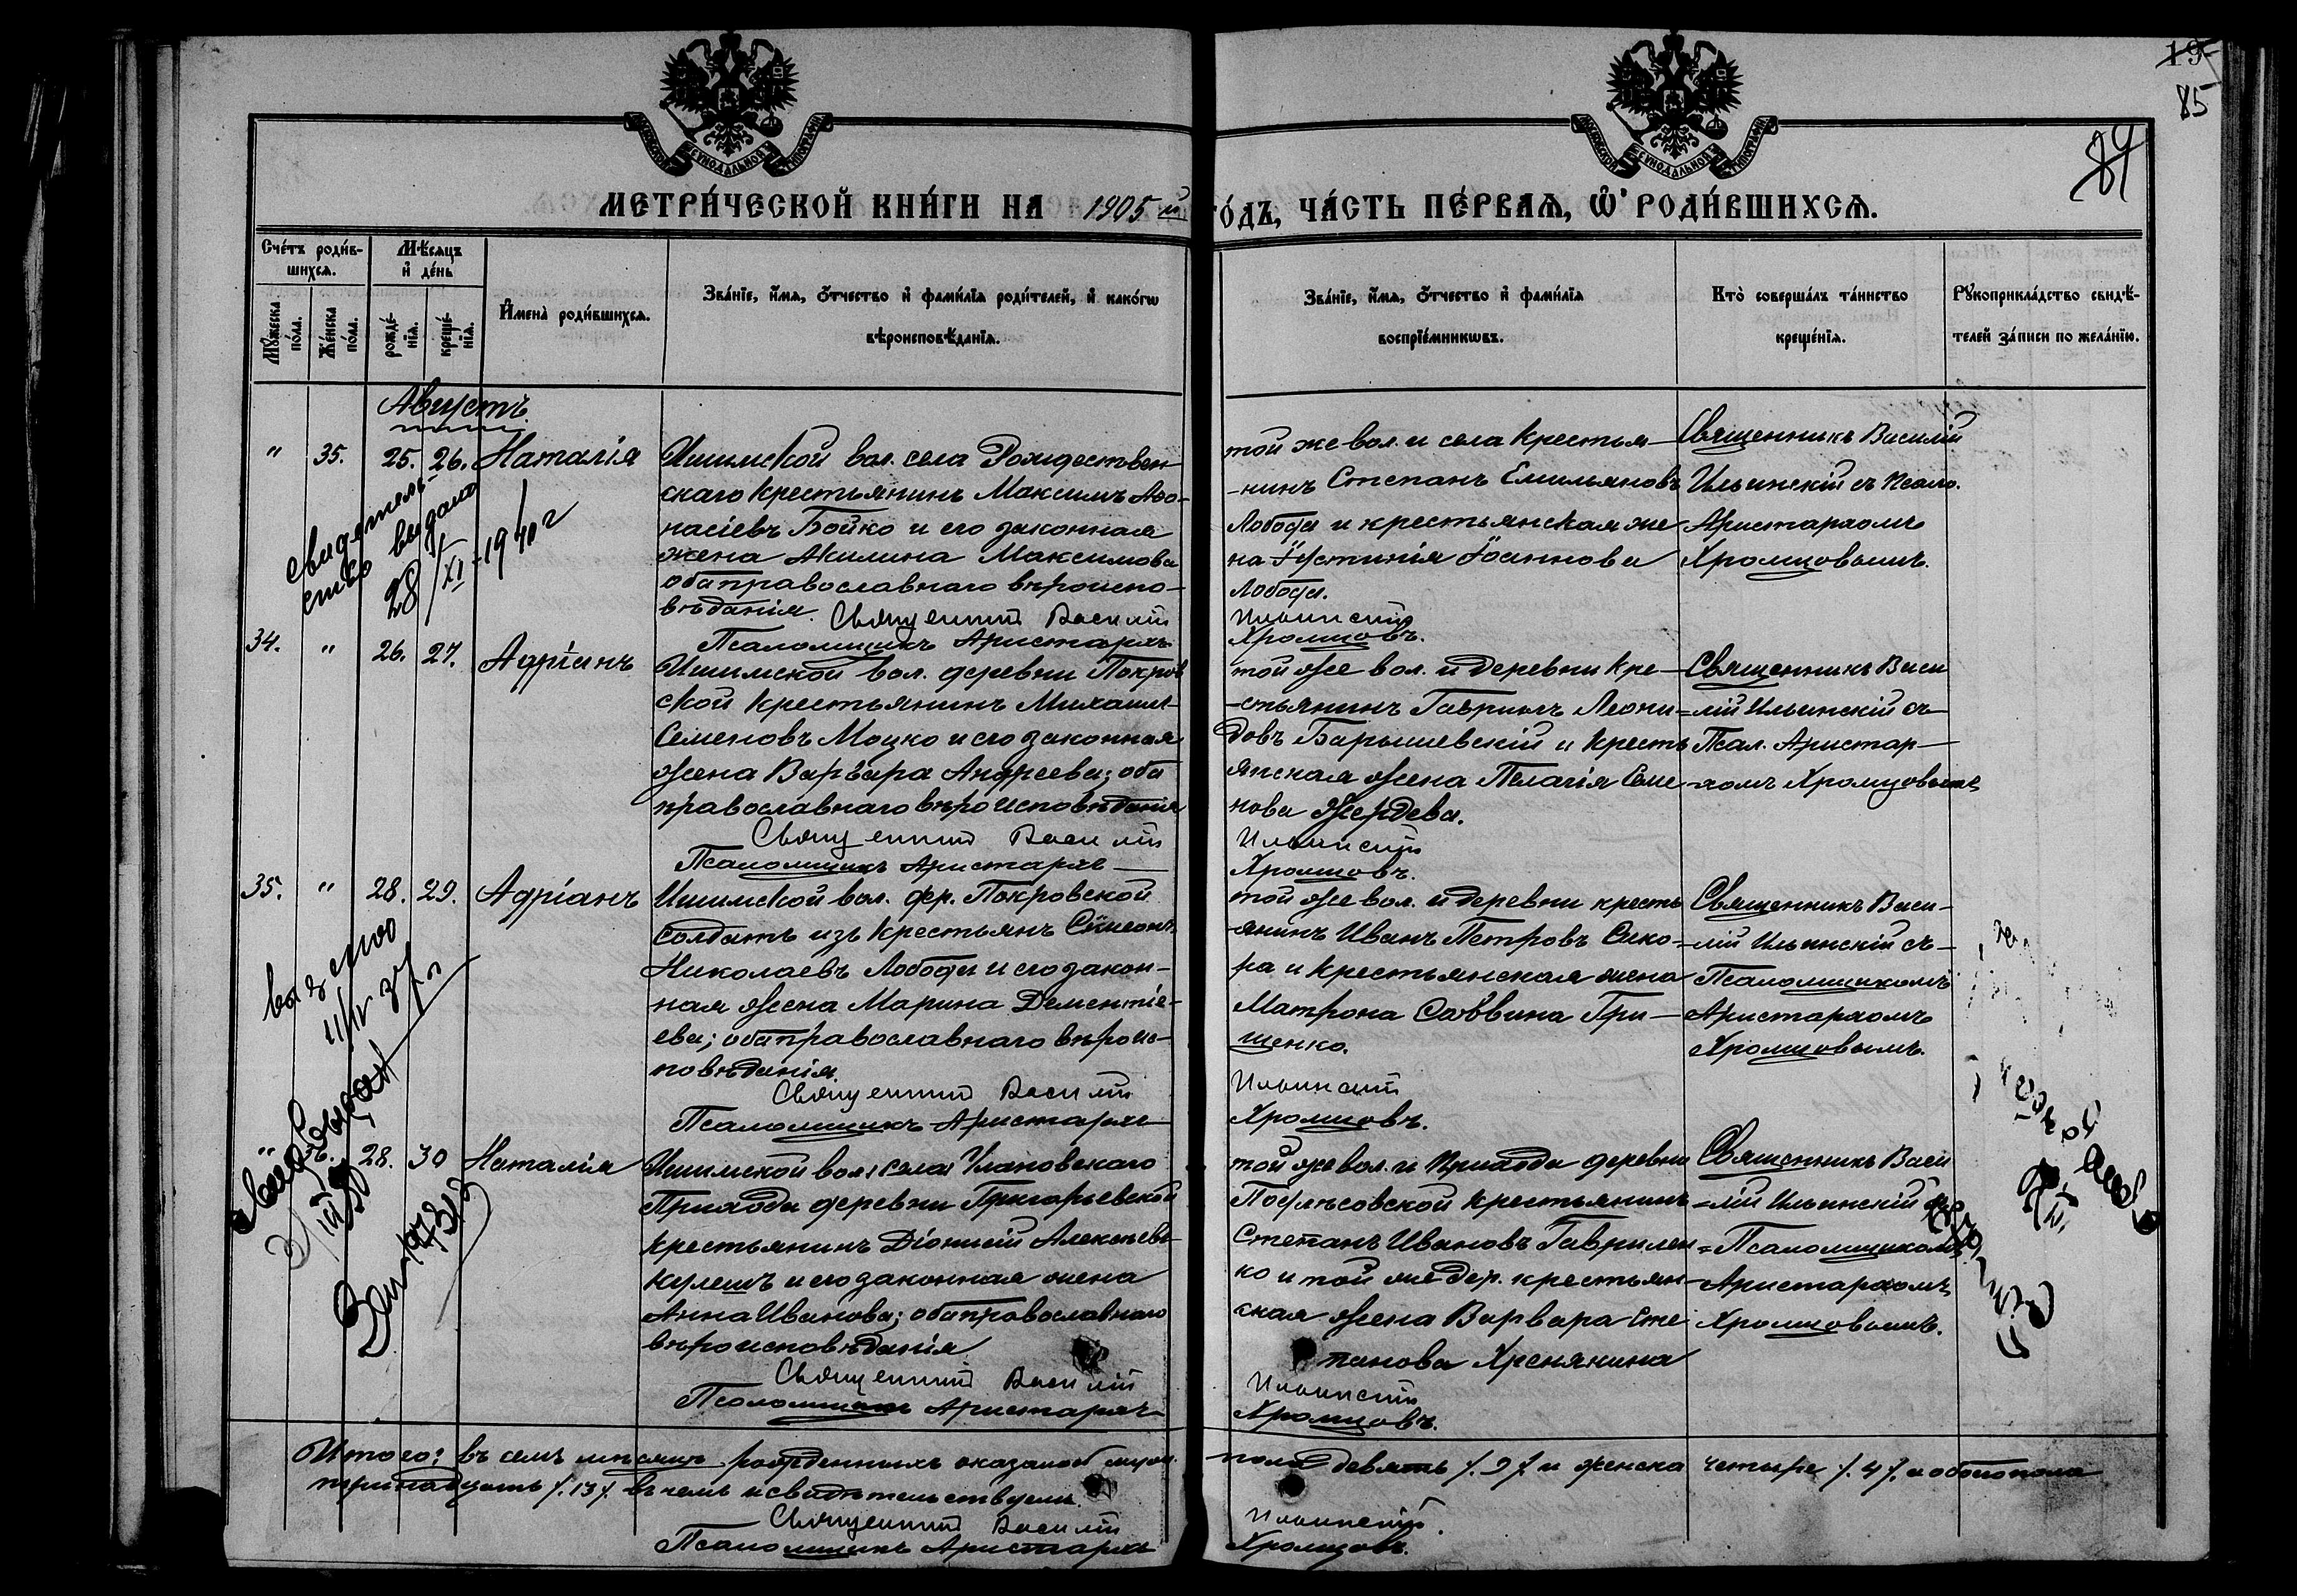 19
85
84
МОСКОВСКОЙ СѴНОДАЛЬНОЙ ТИПОГРАФІИ
МОСКОВСКОЙ СѴНОДАЛЬНОЙ ТИПОГРАФІИ
МЕТРИ́ЧЕСКОЙ КНИ́ГИ НА 1905 й ГО́ДЪ, ЧА́СТЬ ПЕ́РВАѦ, Ѡ҆ РОДИ́ВШИХСѦ.
Сче́тъ роди́в-
шихсѧ.
Мꙋ́жеска
по́ла.
Же́нска
по́ла.
Мѣ́сѧцъ
и҆ де́нь
рожде́-
нїѧ.
креще́-
нїѧ.
И҆мена̀ роди́вшихсѧ.
Зва́нїе, и҆́мѧ, ѻ҆́тчество и҆ фами́лїѧ роди́телей, и҆ како́гѡ
вѣроисповѣ́данїѧ.
Зва́нїе, и҆́мѧ, ѻ҆́тчество и҆ фами́лїѧ
воспрїе́мникѡвъ.
Кто̀ соверша́лъ та́инство
креще́нїѧ.
Рꙋкоприкла́дство свидѣ́-
телей за́писи по жела́нїю.
Августъ
" 35. 25. 26. Наталія
Ишимской вол. села Рождествен-
скаго крестьянинъ Максимъ Аѳо-
насіевъ Бойко и его законная
жена Акилина Максимова
оба православнаго вѣроиспо-
вѣданія. Священникъ Василій
Псаломщикъ Аристархъ
той же вол. и села крестья-
-нинъ Степанъ Емильяновъ
Лобода и крестьянская же
на Іустинія Іоаннова
Лобода.
Ильинскій
Хромцовъ.
Священникъ Василій
Ильинскій съ Псало.
Аристархомъ
Хромцовымъ.
свидетель-
ство выдано
28/XI-1940 г
34. " 26. 27. Адріанъ
Ишимской вол. деревни Покров
ской крестьянинъ Михаилъ
Семеновъ Моцко и его законная
жена Варвара Андреева; оба
православнаго вѣроисповѣданія
Священникъ Василій
Псаломщикъ Аристархъ
той же вол. и деревни кре-
-стьянинъ Гавриилъ Леони-
довъ Барышевскій и кресть
янская жена Пелагія Семе
нова Жердева.
Ильинскій
Хромцовъ.
Священникъ Васи
=лій Ильинскій съ
Псал. Аристар-
-хомъ Хромцовымъ
35. " 28. 29. Адріанъ
Ишимской вол. дер. Покровской
Солдатъ изъ крестьянъ Сѵмеонъ
Николаевъ Лобода и его закон-
ная жена Марина Дементіе-
ева; оба православнаго вѣроис-
повѣданія.
Священникъ Василій
Псаломщикъ Аристархъ
той же вол. и деревни кресть
-янинъ Иванъ Петровъ Сико-
ра и крестьянская жена
Матрона Саввина Гри-
щенко.
Ильинскій
Хромцовъ.
Священникъ Васи-
-лій Ильинскій съ-
Псаломщикомъ
Аристархомъ
Хромцовымъ.
" 36. 28. 30 Наталія
Ишимской вол. села Улановскаго
Прихода деревни Григорьевской
крестьянинъ Діонисій Алексѣевъ
Кулешъ и его законная жена
Анна Иванова; оба православнаго
вѣроисповѣданія
Священникъ Василій
Псаломщикъ Аристархъ
той же вол. и Прихода деревни
Подлѣсовской крестьянинъ
Степанъ Ивановъ Гаврилен
ко и той же дер. крестьян-
ская жена Варвара Сте
панова Хренякина
Ильинскій
Хромцовъ.
Священникъ Васи
=лій Ильинскій съ
=Псаломщикомъ
Аристархомъ
Хромцовымъ.
Итого: въ семъ мѣсяцѣ рожденныхъ оказалось муж. пола девять /.9/. и женска четыре /.4/. и обоего пола
тринадцать /.13/. въ чемъ и свидѣтельствуемъ.
Священникъ Василій Ильинскій.
Псаломщикъ Аристархъ Хромцовъ.